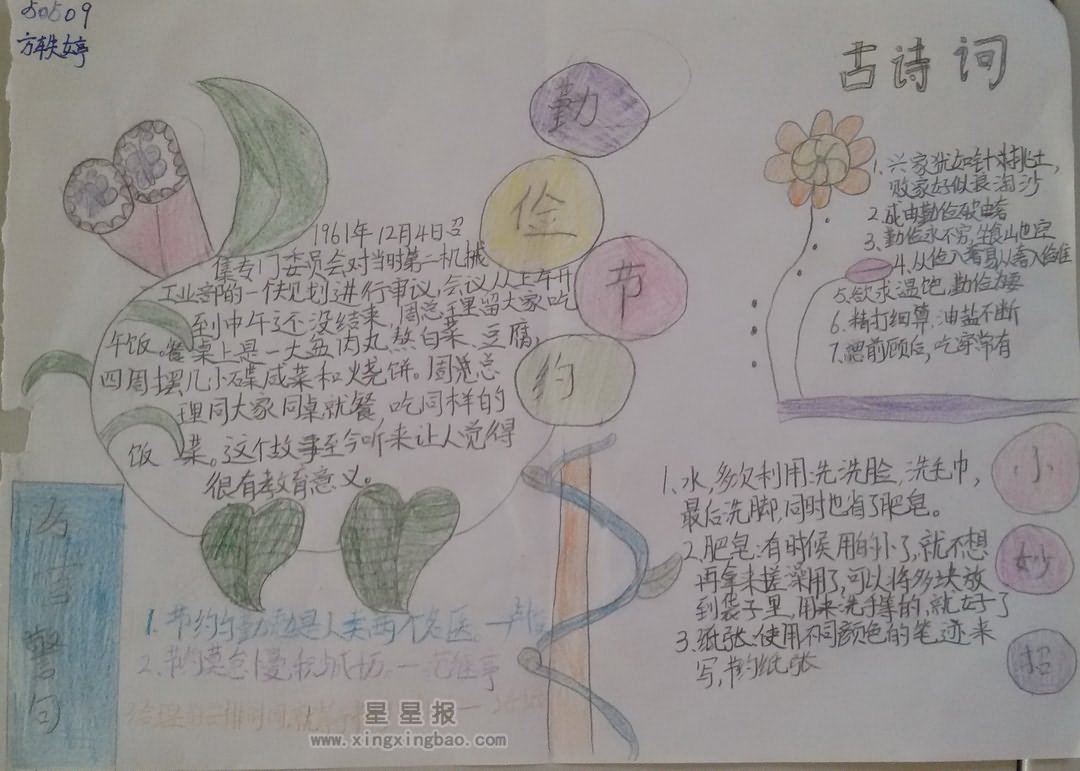 50509
方轶婷
勤
俭
节
约
1961年12月4日召
集专门委员会对当时第二机械
工业部的一个规划进行审议,会议从上午开
到中午还没结束,周总理留大家吃
午饭。餐桌上是一大盆肉丸熬白菜、豆腐,
四周摆几小碟咸菜和烧饼。周恩总
理同大家同桌就餐 吃同样的
饭 菜。这个故事至今听来让人觉得
很有教育意义。
古诗词
1、兴家犹如针挑土,
败家好似浪淘沙
2、成由勤俭破由奢
3、勤俭永不穷,坐食山也空
4、从俭入奢易从奢入俭难
5、欲求温饱,勤俭为要
6、精打细算,油盐不断
7、瞻前顾后,吃穿常有
小
妙
招
1、水,多次利用:先洗脸,洗毛巾,
最后洗脚,同时也省了肥皂。
2、肥皂:有时候用的小了,就不想
再拿来搓澡用了,可以将多块放
到袋子里,用来洗手等的,就好了
3、纸张:使用不同颜色的笔迹来
写,节约纸张
名言警句
1、节约与勤勉是人类两个名医。—卢梭
2、节约莫怠慢,积少成切。—
星星报
www.xingxingbao.com